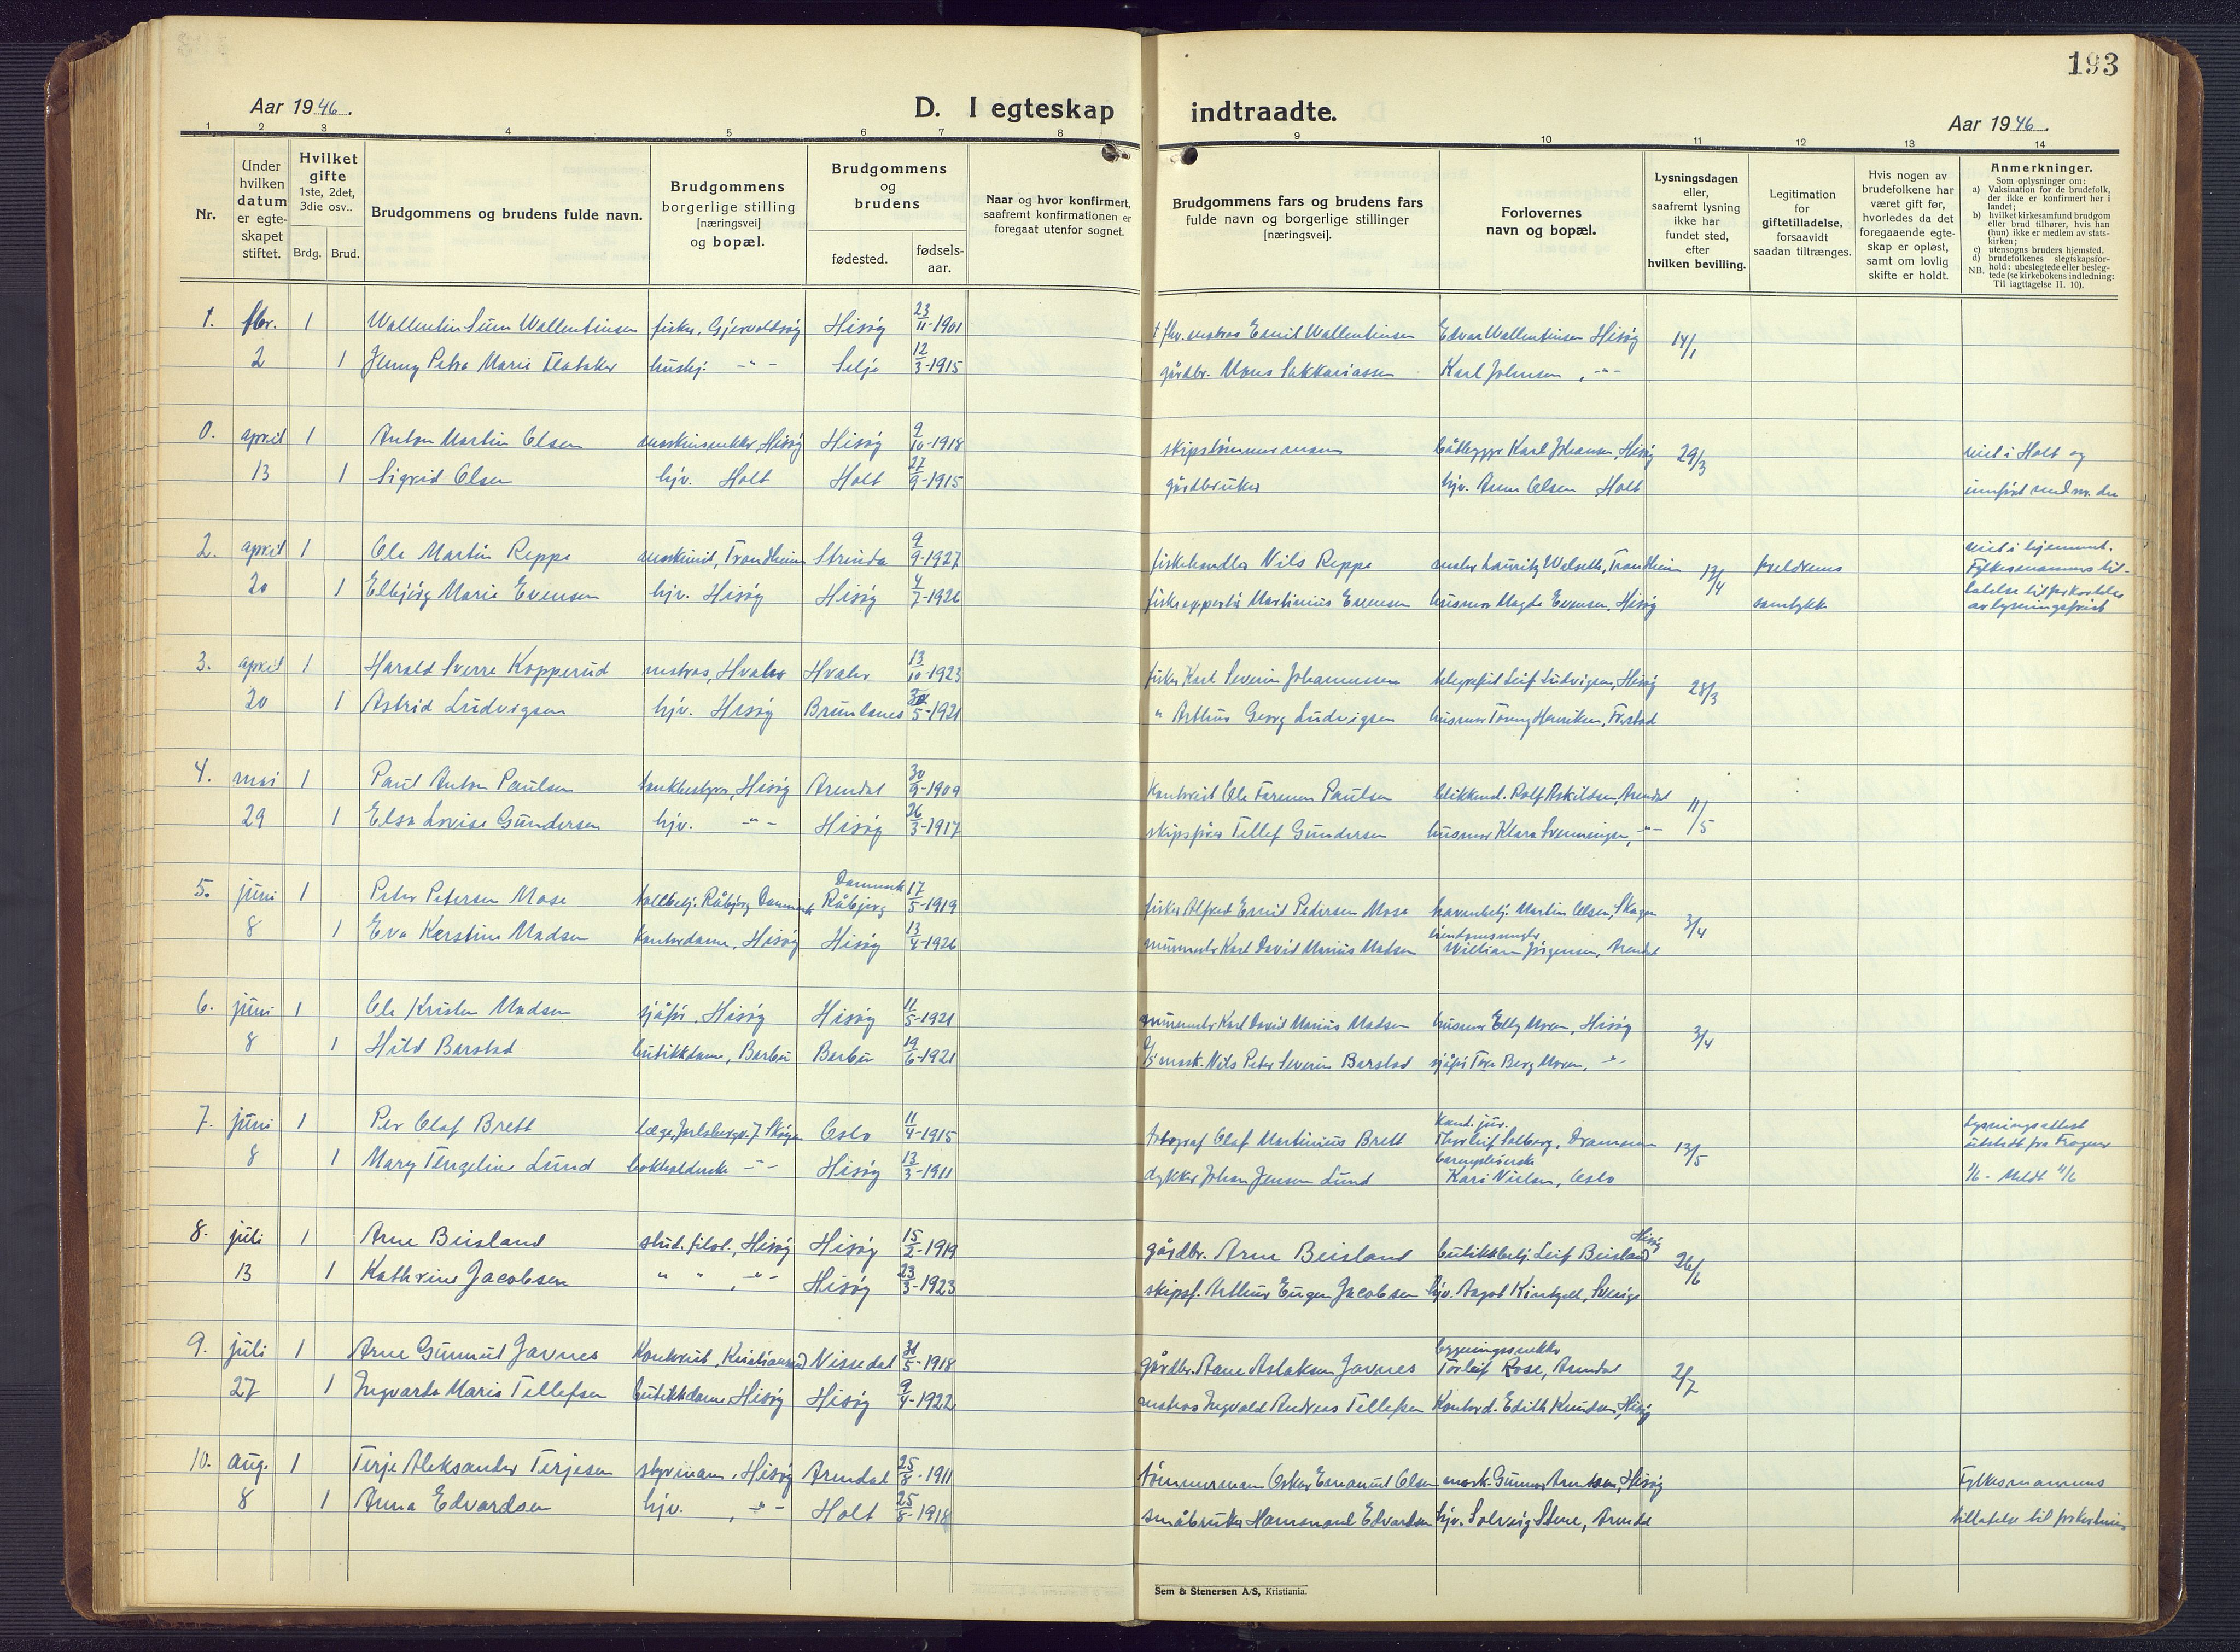 193
Aar 1946.
D. I egteskap indtraadte.
Aar 1946.
1 2 3 4 5 6 7 8 9 10 11 12 13 14
Nr.
Under hvilken datum er egteskapet stiftet.
Hvilket gifte 1ste, 2det, 3die osv..
Brdg. Brud.
Brudgommens og brudens fulde navn.
Brudgommens borgerlige stilling [næringsvei] og bopæl.
Brudgommens og brudens
fødested.
fødsels-aar.
Naar og hvor konfirmert, saafremt konfirmationen er foregaat utenfor sognet.
Brudgommens fars og brudens fars fulde navn og borgerlige stillinger [næringsvei].
Forlovernes navn og bopæl.
Lysningsdagen eller, saafremt lysning ikke har fundet sted, efter hvilken bevilling.
Legitimation for giftetilladelse, forsaavidt saadan tiltrænges.
Hvis nogen av brudefolkene har været gift før, hvorledes da det foregaaende egteskap er opløst, samt om lovlig skifte er holdt.
Anmerkninger.
Som oplysninger om:
a) Vaksination for de brudefolk, der ikke er konfirmert her i landet;
b) hvilket kirkesamfund brudgom eller brud tilhører, hvis han (hun) ikke er medlem av statskirken;
c) utensogns bruders hjemsted.
d) brudefolkenes slegtskapsforhold: ubeslegtede eller beslegtede (se kirkebokens indledning: Til iagttagelse II. 10).
NB.
1. fbr. 1 Wallentin Sum Wallentinsen fisker, Gjervoldsøy Hisøy 23/11-1901 † fhv. matros Emil Wallentinsen Edvar Wallentinsen Hisøy 14/1
2 1 Jenny Petra Marie Flataker hushj. -"- Selje 12/3-1915 gårdbr. Mons Sakkariassen Karl Johnsen, -"-
0. april 1 Anton Martin Olsen Hisøy Hisøy 9/10-1918 skipstømmermann båtbygger Karl Johansen, Hisøy 29/3 viet i Holt og
13 1 Sigrid Olsen hjv. Holt Holt 27/9-1915 gårdbruker hjv. Olsen Holt innført med nr. der
2. april 1 Ole Martin Reppe maskinist, Trondheim Strinda 9/9-1927 fiskehandler Nils Reppe maler Lauritz Welseth, Trondheim 13/4 foreldrenes viet i hjemmet. Fylkesmannens til-
20 1 Elbjørg Marie Evensen hjv. Hisøy Hisøy 4/7-1926 fiskeexportør Martinius Evensen husmor Magda Evensen, Hisøy samtykke latelse til forkortelse av lysningsfrist
3. april 1 Harald Sverre Kopperud matros, Hvaler Hvaler 13/10-1923 fisker Karl Severin Johannessen telegrafist Leif Ludvigsen, Hisøy 28/3
20 1 Astrid Ludvigsen hjv. Hisøy Brunlanes 5-1921 " Arthur Georg Ludvigsen husmor Tonny Henriksen, Fr.stad
4. mai 1 Paul Anton Paulsen Hisøy Arendal 30/9-1909 Kontorist Ole Paulsen blikkensl. Rolf Askildsen, Arendal 11/5
29 1 Elsa Lovise Gundersen hjv. -"- Hisøy 26/3-1917 skipsfører Tellef Gundersen husmor Klara Svenningsen, -"-
5. juni 1 Peter Petersen Mose tollbetj. Råbjerg Danmark Danmark Råbjerg 17/5-1919 fisker Alfred Emil Pedersen Mose havnebetj. Martin Olsen, Skagen 3/4
8 1 Eva Kerstine Madsen Kontordame, Hisøy Hisøy 13/4-1926 murmester Karl David Marius Madsen eiendomsmegler William Jørgensen, Arendal
6. juni 1 Ole Kristen Madsen sjåfør, Hisøy Hisøy 11/5-1921 murmester Karl David Marius Madsen husmor Elly Moren, Hisøy 3/4
8 1 Hild Barstad butikkdame, Barbu Barbu 19/6-1921 mask. Nils Peter Severin Barstad sjåfør Tore Berg Moren, -"-
7. juni 1 Per Olaf Brett læge, Jarlsbergv. 7 Skøyen Oslo 11/4-1915 fotograf Olaf Martinius Brett Kand. jur. Thorleif Solberg, Drammen 13/5 lysningsattest utstedt fra Frogner
8 1 Mary Tengeline Lund bokholderske -"- Hisøy 13/3-1911 dykker Johan Jensen Lund barnepleierske Kari Nielsen, Oslo 1/6 - Meldt 11/6
8. juli 1 Arne Beisland stud. filol., Hisøy Hisøy 15/2-1919 gårdbr. Arne Beisland butikkbetj. Leif Beisland Hisøy 26/6
13 1 Kathrine Jacobsen " " , -"- Hisøy 23/3-1923 skipsf. Arthur Eugen Jacobsen hjv. Aagot Sverige
9. juli 1 Arne Gunnul Javnes Kontorist, Kristiansand Nissedal 31/5-1918 gårdbr. Aane Aslaksen Javnes bygningssnekker Torleif Rose, Arendal 2/7
27 1 Ingvarda Marie Tellefsen butikkdame, Hisøy Hisøy 9/4-1922 matros Ingvald Andreas Tellefsen Kontord. Edith Knudsen, Hisøy
10. aug. 1 Terje Aleksander Terjesen styrmann, Hisøy Arendal 25/8-1911 tømmermann Oskar Emanuel Olsen mask. Gunnar Arntsen, Hisøy Fylkesmannens
8 1 Anna Edvardsen hjv. , -"- Holt 25/8-1918 småbruker Hammond Edvardsen hjv. Solveig Stene, Arendal tillatelse til
Sem & Stenersen A/S, Kristiania.